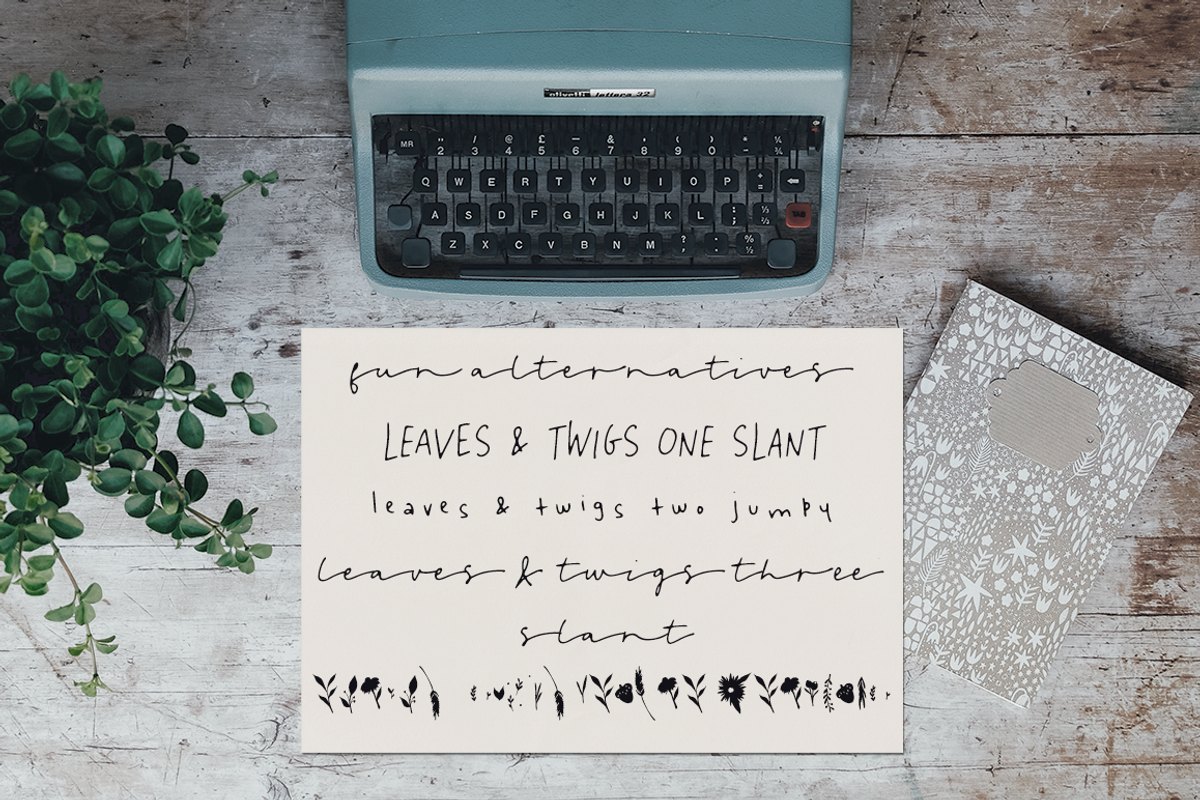 olivetti lettera 32
MR " 2 / 3 @ 4 £ 5 _ 6 & 7 ' 8 ( 9 ) 0 * - ¼ ¾
Q W E R T Y U I O P + =
A S D F G H J K L : ; ⅓ ⅔ TAB
Z X C V B N M ? , . . % ½
fun alternatives
LEAVES & TWIGS ONE SLANT
leaves & twigs two jumpy
leaves & twigs three
slant